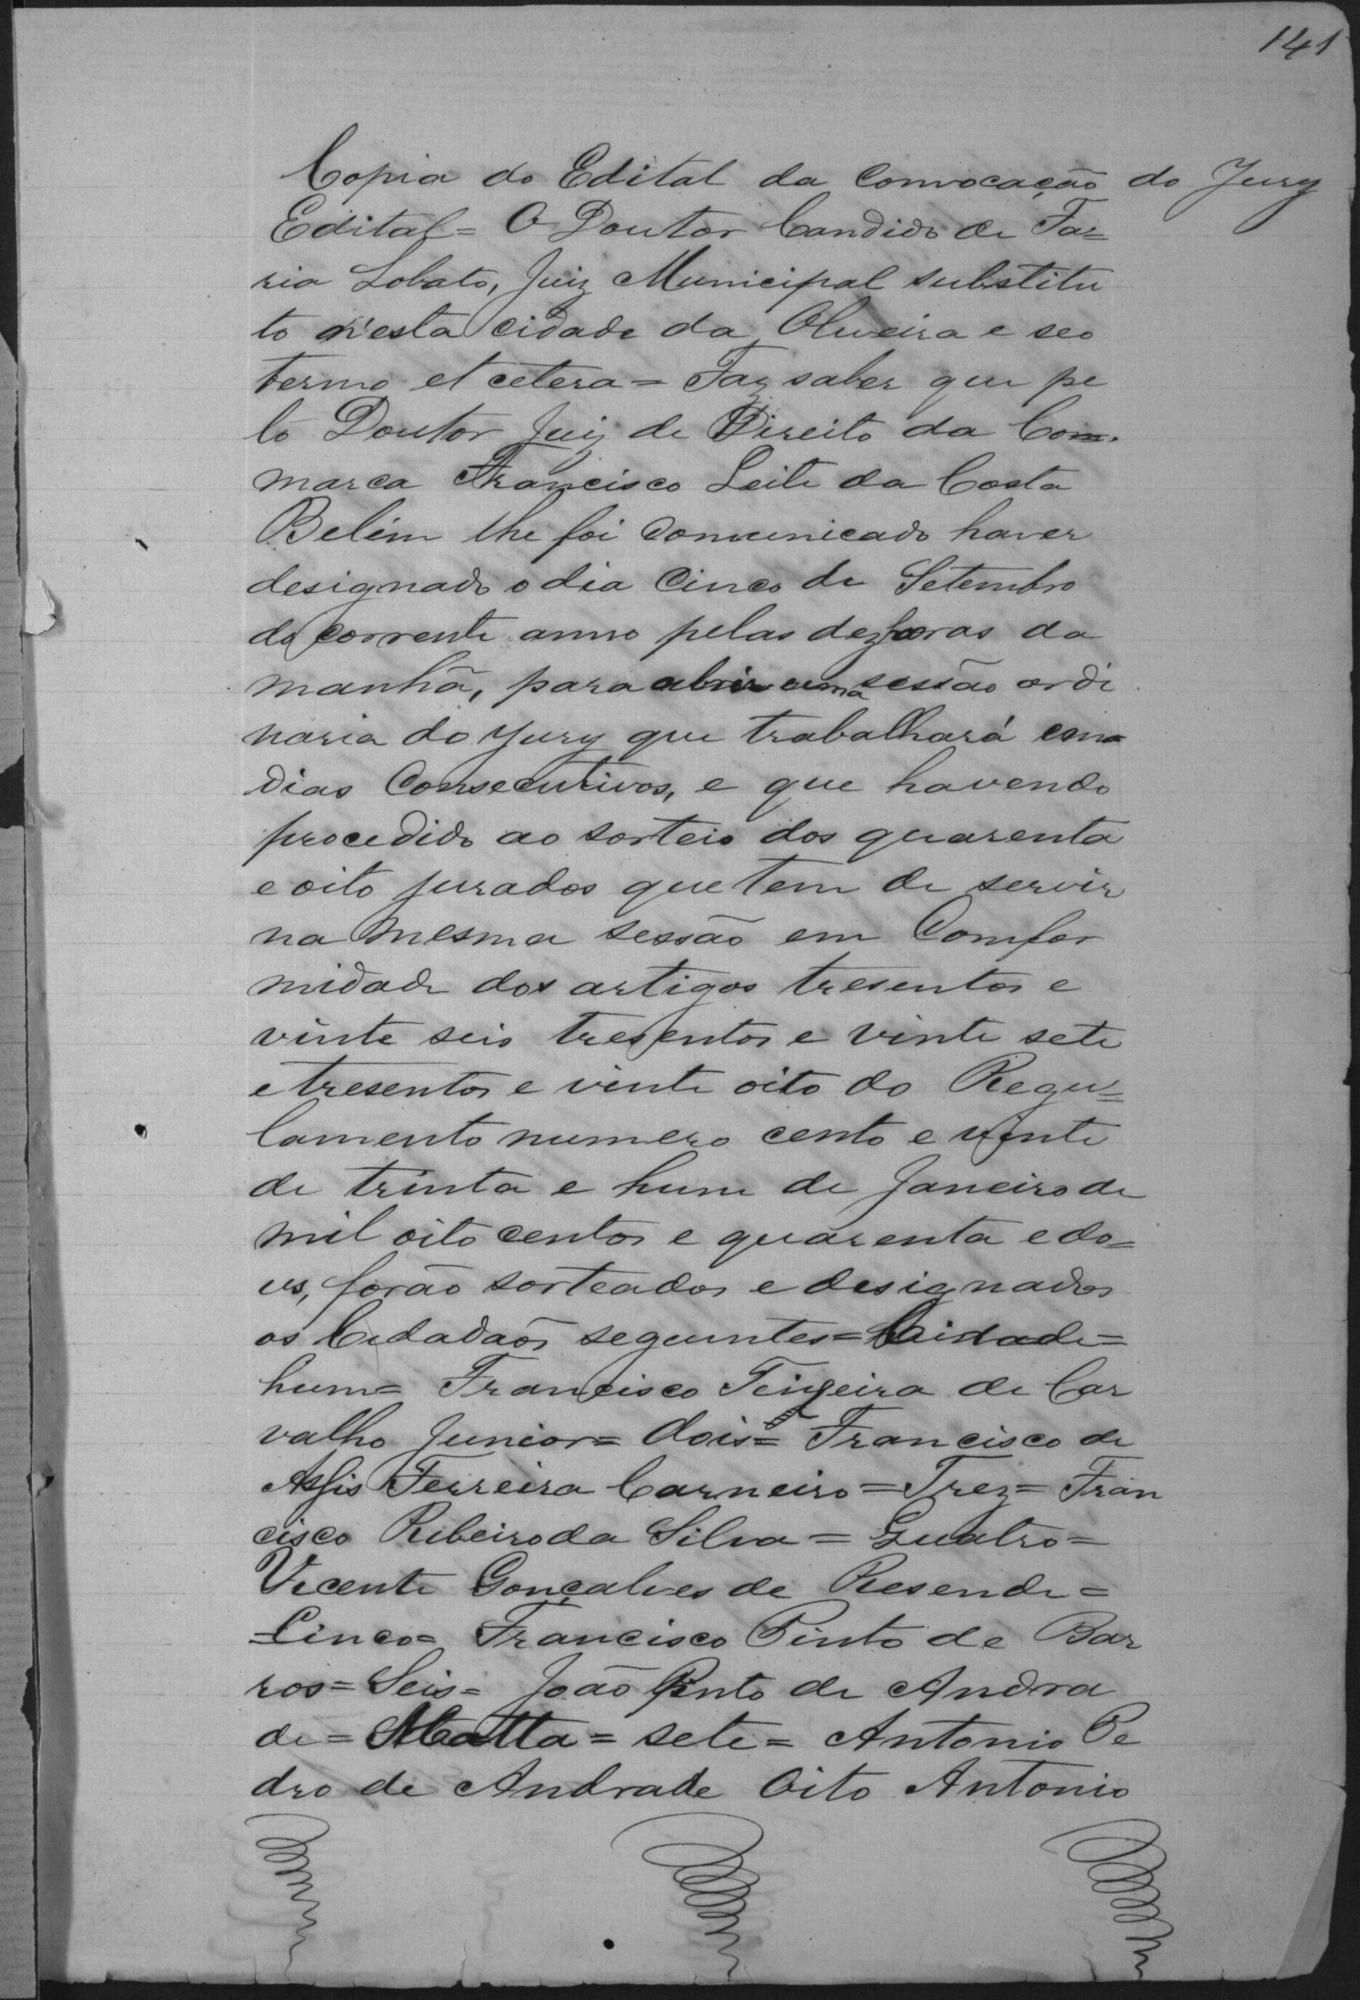 141
Copia do Edital da Convocação do Jury
Edital = O Doutor Candido de Fa=
ria Lobato, Juiz Municipal substitu
to n'esta cidade da Oliveira e seo
termo et cetera = Faz saber que pe
lo Doutor Juiz de Direito da Com.
marca Francisco Leite da Costa
Belém lhe foi Comunicado haver
designado o dia Cinco de Setembro
do corrente anno pelas dez horas da
manhã, para abrir uma sessão ordi
naria do Jury que trabalhará em
dias Consecutivos, e que havendo
procedido ao sorteio dos quarenta
e oito jurados que tem de servir
na mesma sessão em Comfor
midade dos artigos tresentos e
vinte seis tresentos e vinte sete
e tresentos e vinte oito do Regu=
lamento numero cento e vinte
de trinta e hum de Janeiro de
mil oito centos e quarenta e do=
us, forão sorteados e designados
os Cidadãos seguintes = Cidade =
hum = Francisco Teixeira de Car
valho Junior = dois = Francisco de
Assis Ferreira Carneiro = Trez = Fran
cisco Ribeiro da Silva = Quatro =
Vicente Gonçalves de Resende =
= Cinco = Francisco Pinto de Bar
ros = Seis = João Pinto de Andra
de = Matta = sete = Antonio Pe
dro de Andrade Oito Antonio